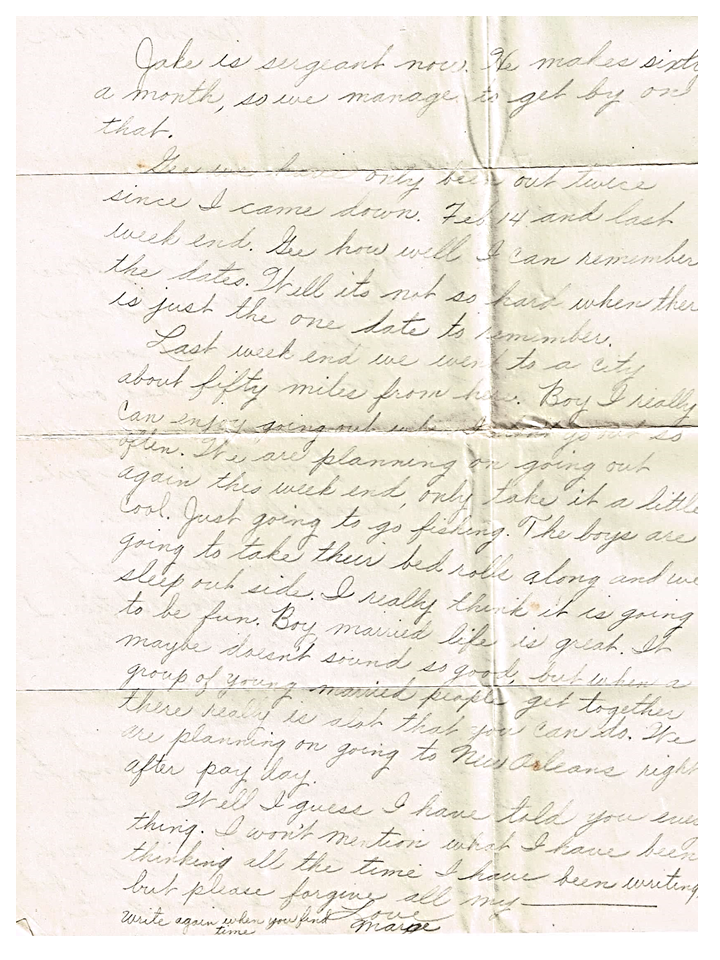 Jake is sergeant now. He makes sixty
a month, so we manage to get by on
that.
Gee we have only been out twice
since I came down. Feb 14 and last
week end. Gee how well I can remember
the dates. Well its not so hard when ther
is just the one date to remember.
Last week end we went to a city
about fifty miles from here. Boy I really
can enjoy going out when go out so
often. We are planning on going out
again this week end, only take it a little
cool. Just going to go fishing. The boys are
going to take their bed rolls along and we
sleep out side. I really think it is going
to be fun. Boy married life is great. It
maybe doesn't sound so good, but when a
group of young married people get together
there realy is alot that you can do. We
are planning on going to New Orleans right
after pay day.
Well I guess I have told you ever
thing. I won't mention what I have been
thinking all the time I have been writing,
but please forgive all my
Love
Write again when you find
time